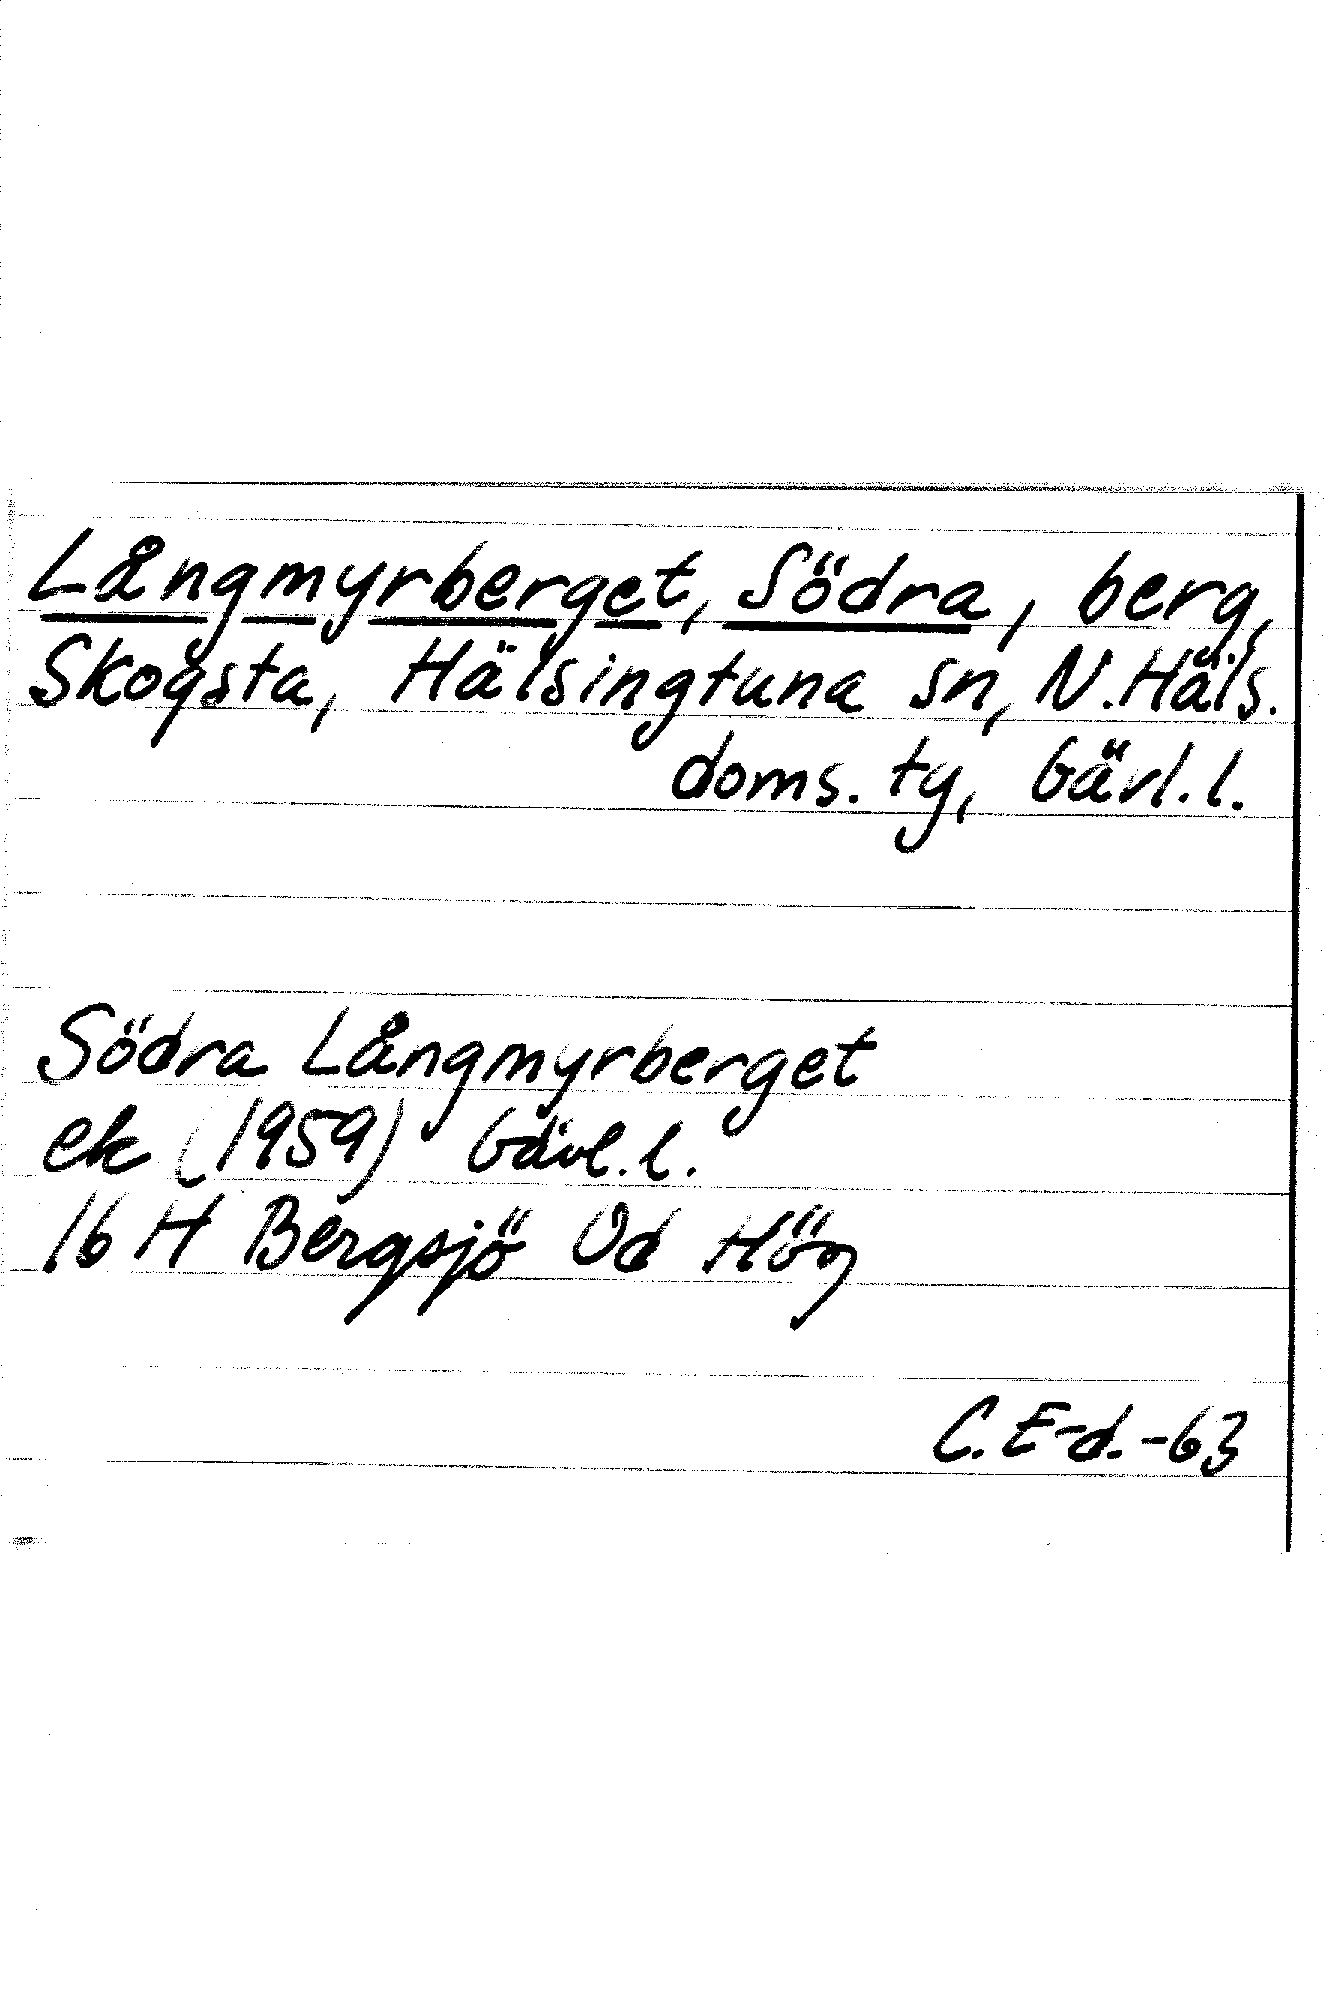 Långmyrberget, Södra, berg,
Skogsta, Hälsingtuna sn, N.Häls.
doms. ty, Gävl.l.
Södra Långmyrberget
ek (1959) Gävl.l.
16 H Bergsjö Od Hög
C.E-d.-63